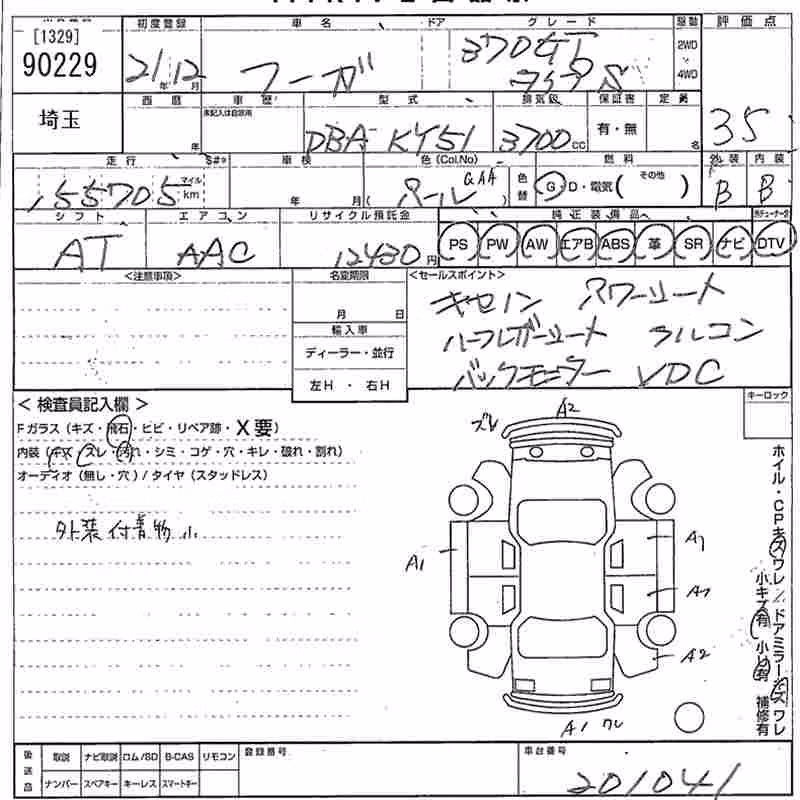 [1329]
90229
埼玉
初度登録 車名 ドア グレード 駆動 評価点
21年12月 フーガ 370GT タイプS 2WD 4WD
西暦 車歴 型式 排気量 保証書 定員
年 未記入は自家用 DBA-KY51 3700cc 有・無 名 35
走行 S#* 車検 色(Col.No) 色替 燃料 外装 内装
155705 マイル km 年 月( パール GAA ) G・D・電気( その他 ) B B
シフト エアコン リサイクル預託金 純正装備品
AT AAC 12430円 PS PW AW エアB ABS 革 SR ナビ DTV
<注意事項> 名変期限 <セールスポイント>
月 日
キセノン パワーシート
輸入車
ハーフレザーシート アルコン
ディーラー・並行
バックモニター VDC
左H・右H
キーロック
< 検査員記入欄 >
Fガラス(キズ・飛石・ヒビ・リペア跡・X要)
内装(キズ・スレ・汚れ・シミ・コゲ・穴・キレ・破れ・割れ)
オーディオ(無し・穴)/タイヤ(スタッドレス)
外装付着物小
ズレ A2
A1 A1
A1
A2
A1 ワレ
ホイル・CPキズワレ/ドアミラーキズワレ
小キズ有 小凹有 補修有
後送品 取説 ナビ取説 ロム/SD B-CAS リモコン 登録番号 車台番号
ナンバー スペアキー キーレス スマートキー 201041